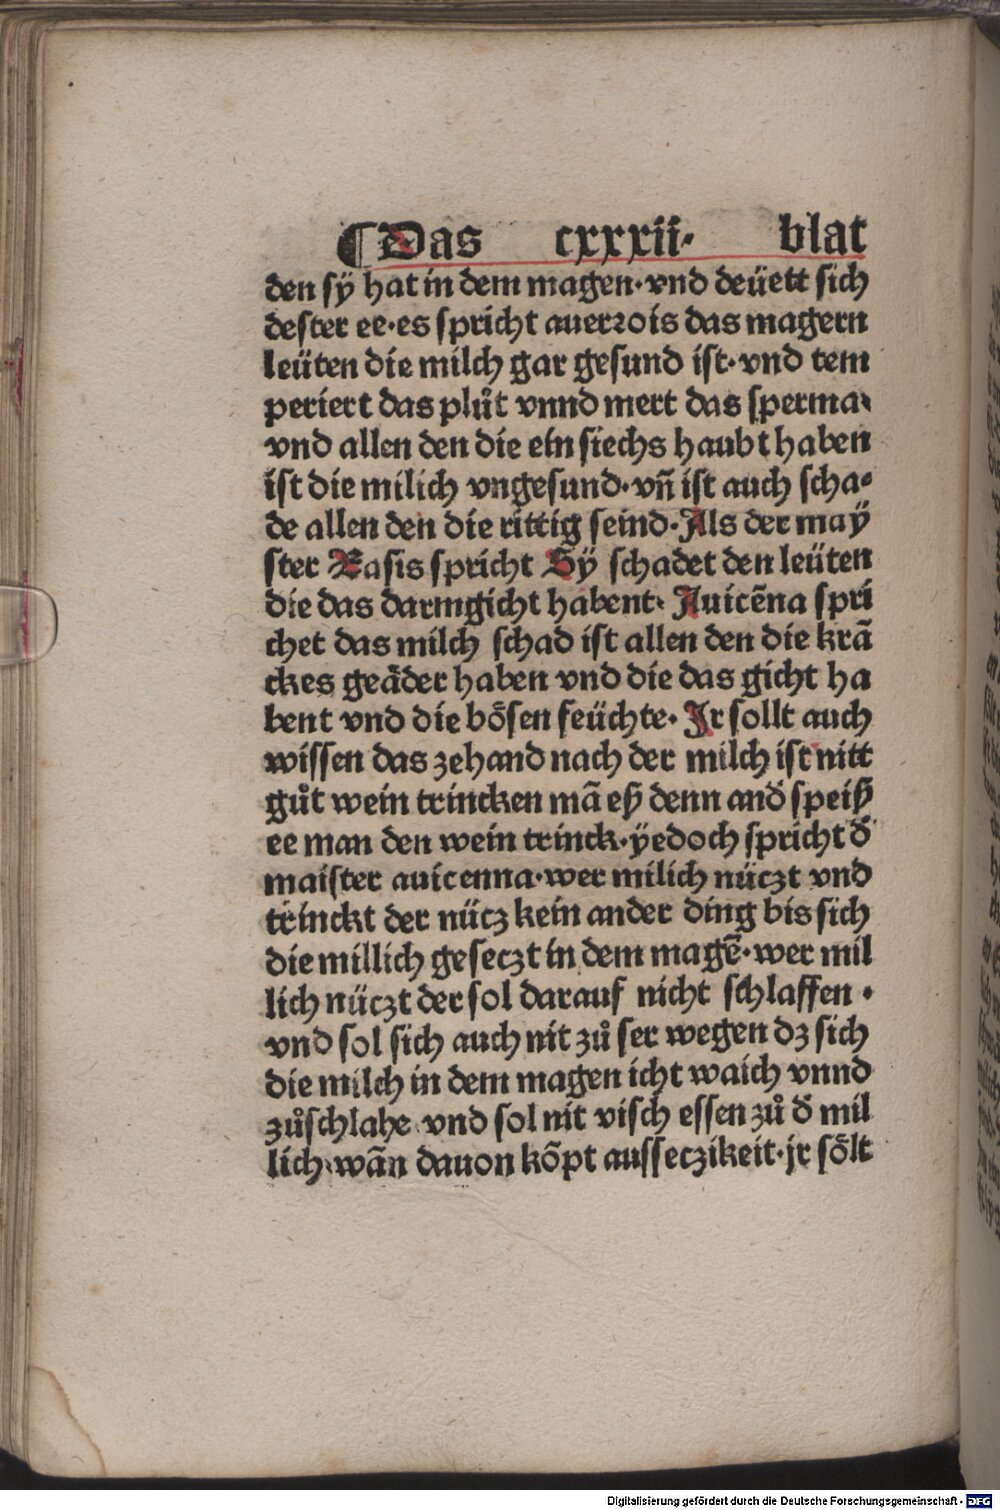 ¶Das cxxxii· blat
den sÿ hat in dem magen·vnd deüett sich
dester ee·es spricht auerrois das magern
leüten die milch gar gesund ist·vnd tem
periert das plůt vnnd mert das sperma·
vnd allen den die ein siechs haubt haben
ist die milich vngesund·vn̄ ist auch scha⸗
de allen den die rittig seind·Als der maÿ
ster Rasis spricht Sÿ schadet den leüten
die das darmgicht habent· Auicēna spri
chet das milch schad ist allen den die krā
ckes geäder haben vnd die das gicht ha
bent vnd die bösen feüchte· Jr sollt auch
wissen das zehand nach der milch ist nitt
gůt wein trincken mā eß denn and̾ speiß
ee man den wein trinck·ÿedoch spricht d̾
maister auicenna·wer milich nüczt vnd
trinckt der nücz kein ander ding bis sich
die millich geseczt in dem magē·wer mil
lich nüczt der sol darauf nicht schlaffen ·
vnd sol sich auch nit zů ser wegen dz sich
die milch in dem magen icht waich vnnd
zůschlahe·vnd sol nit visch essen zů d̾ mil
lich·wān dauon kōpt ausseczikeit·jr sölt
Digitalisierung gefördert durch die Deutsche Forschungsgemeinschaft - DFG